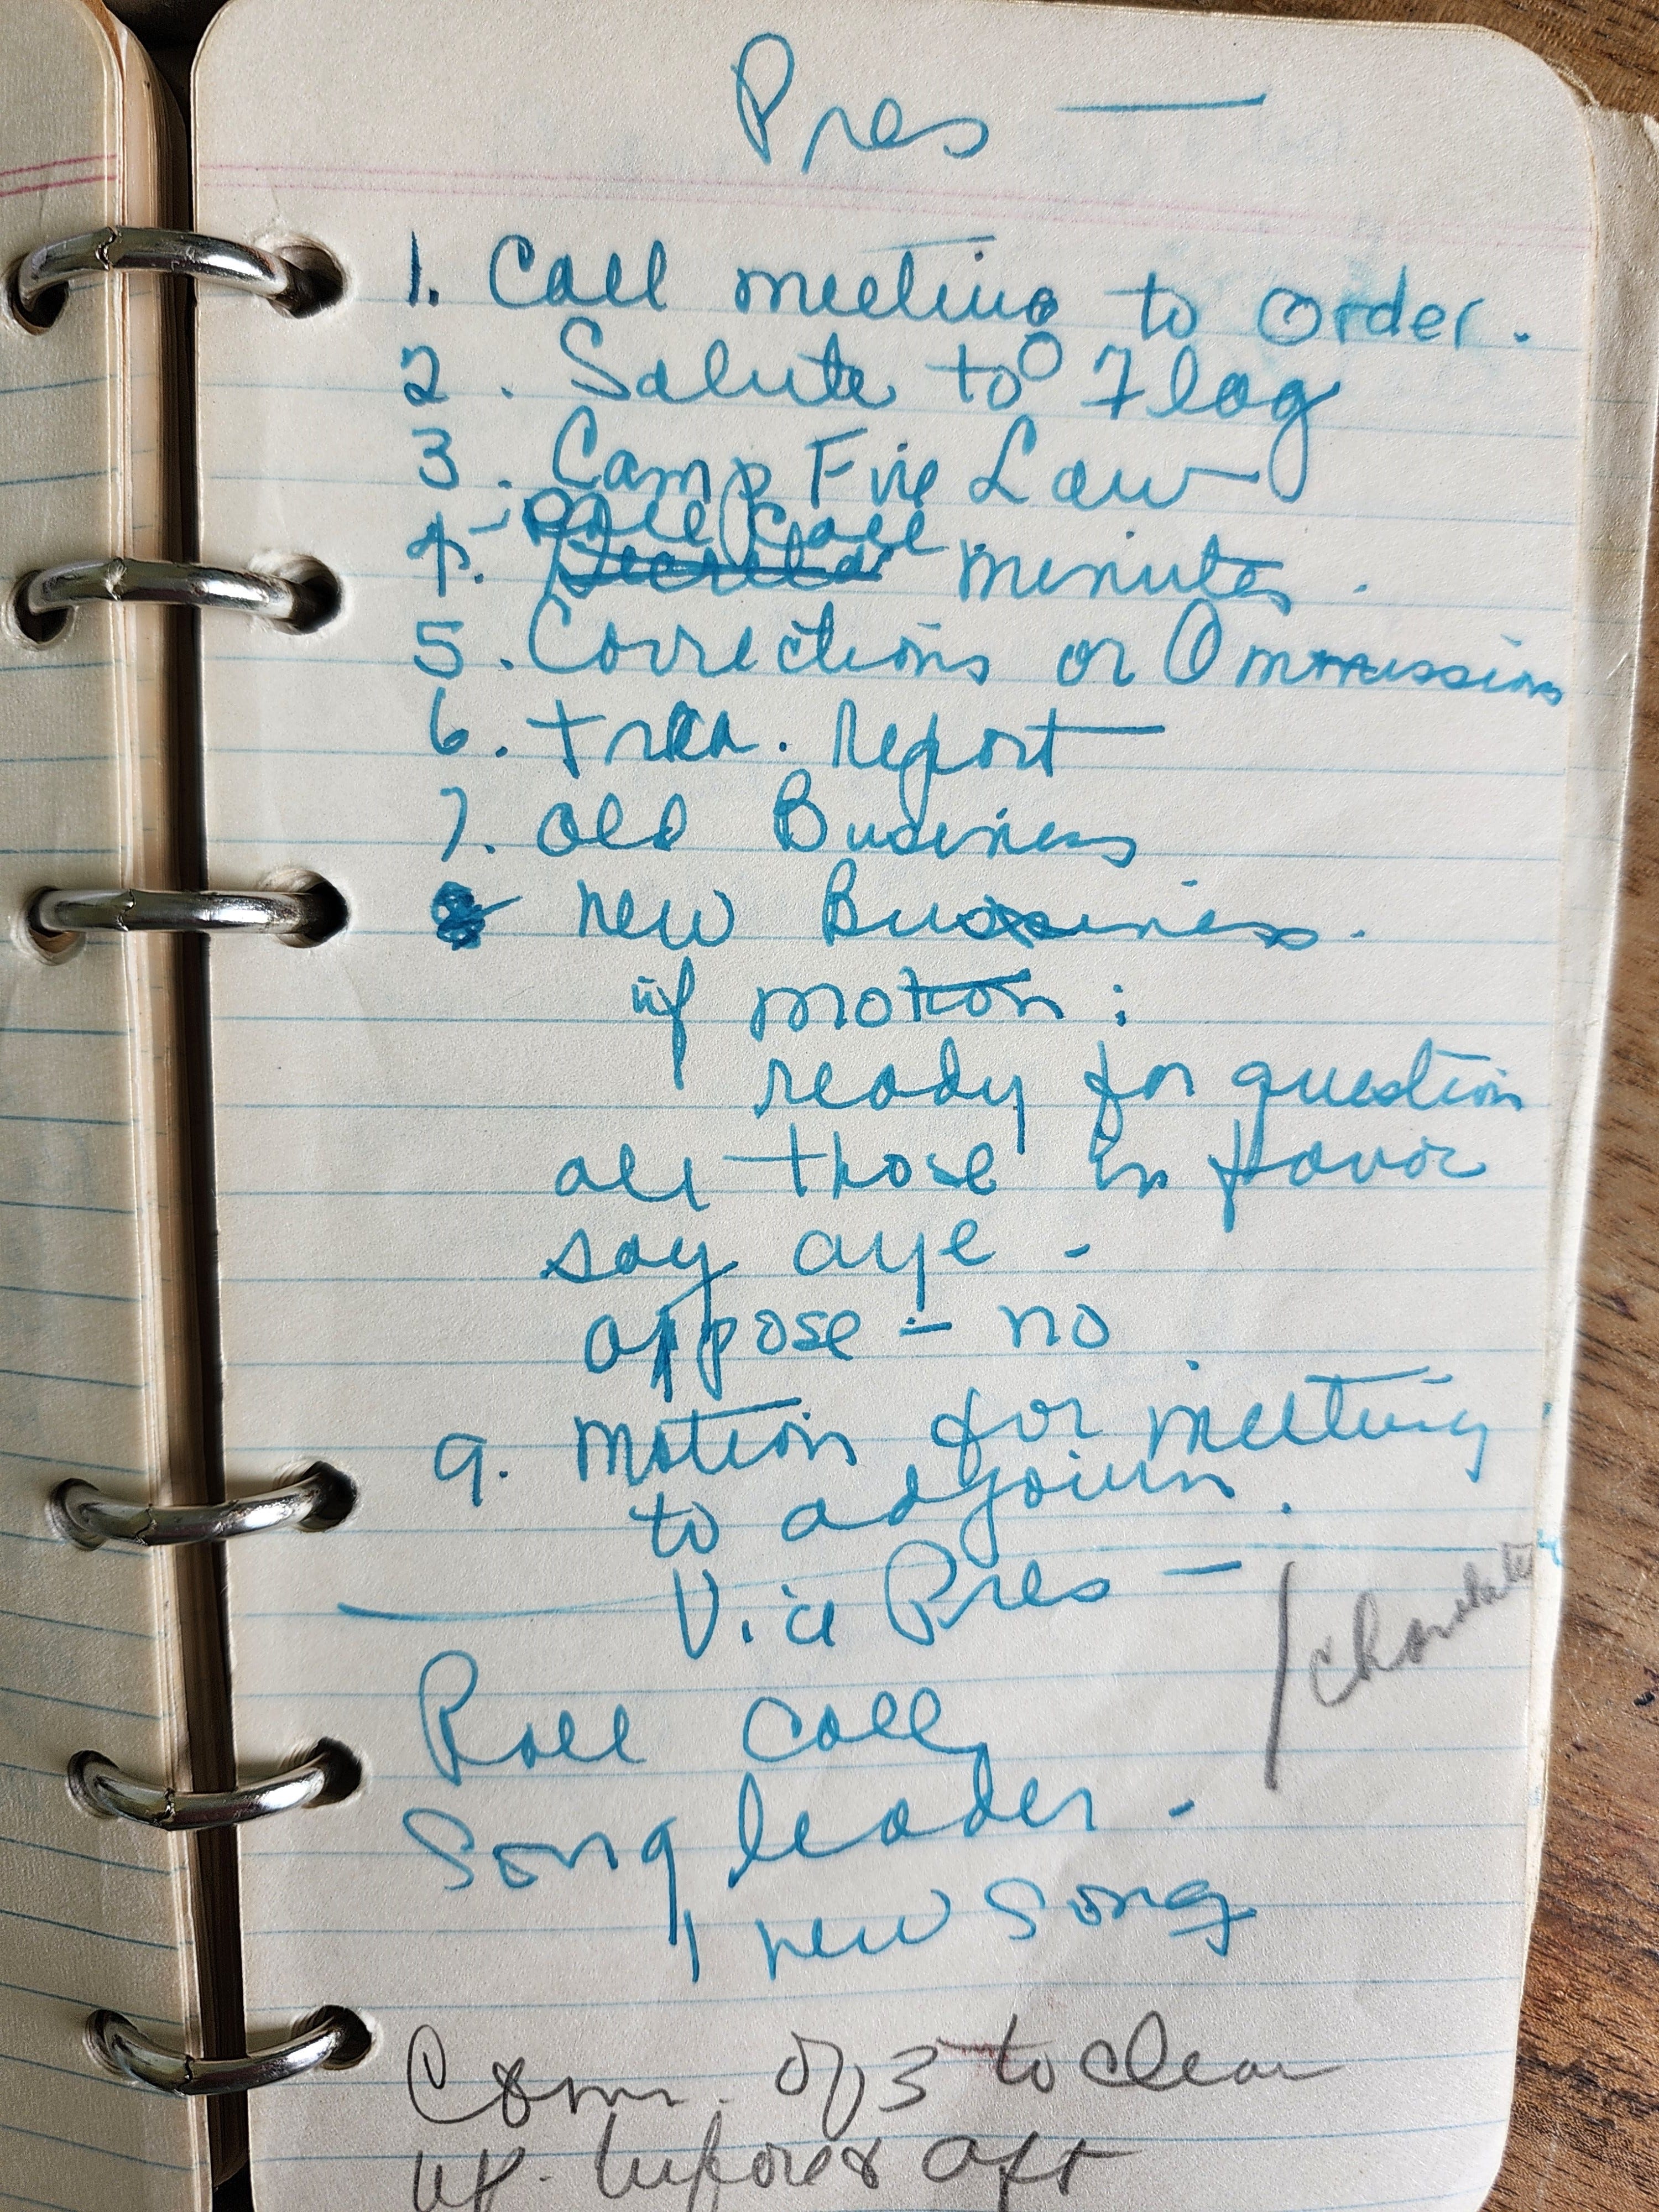 Pres —
1. Call meeting to Order.
2. Salute to Flag
3. Camp Fire Law
- Roll Call
4. minutes.
5. Corrections or Ommissions
6. trea. report
7. Old Business
8 new Business.
if motion:
ready for question
all those in favor
say aye -
oppose - no
9. motion for meeting
to adjourn.
Vice Pres -
Roll Call
Song leader -
1 new song
Com. of 3 to clean
up. before & aft